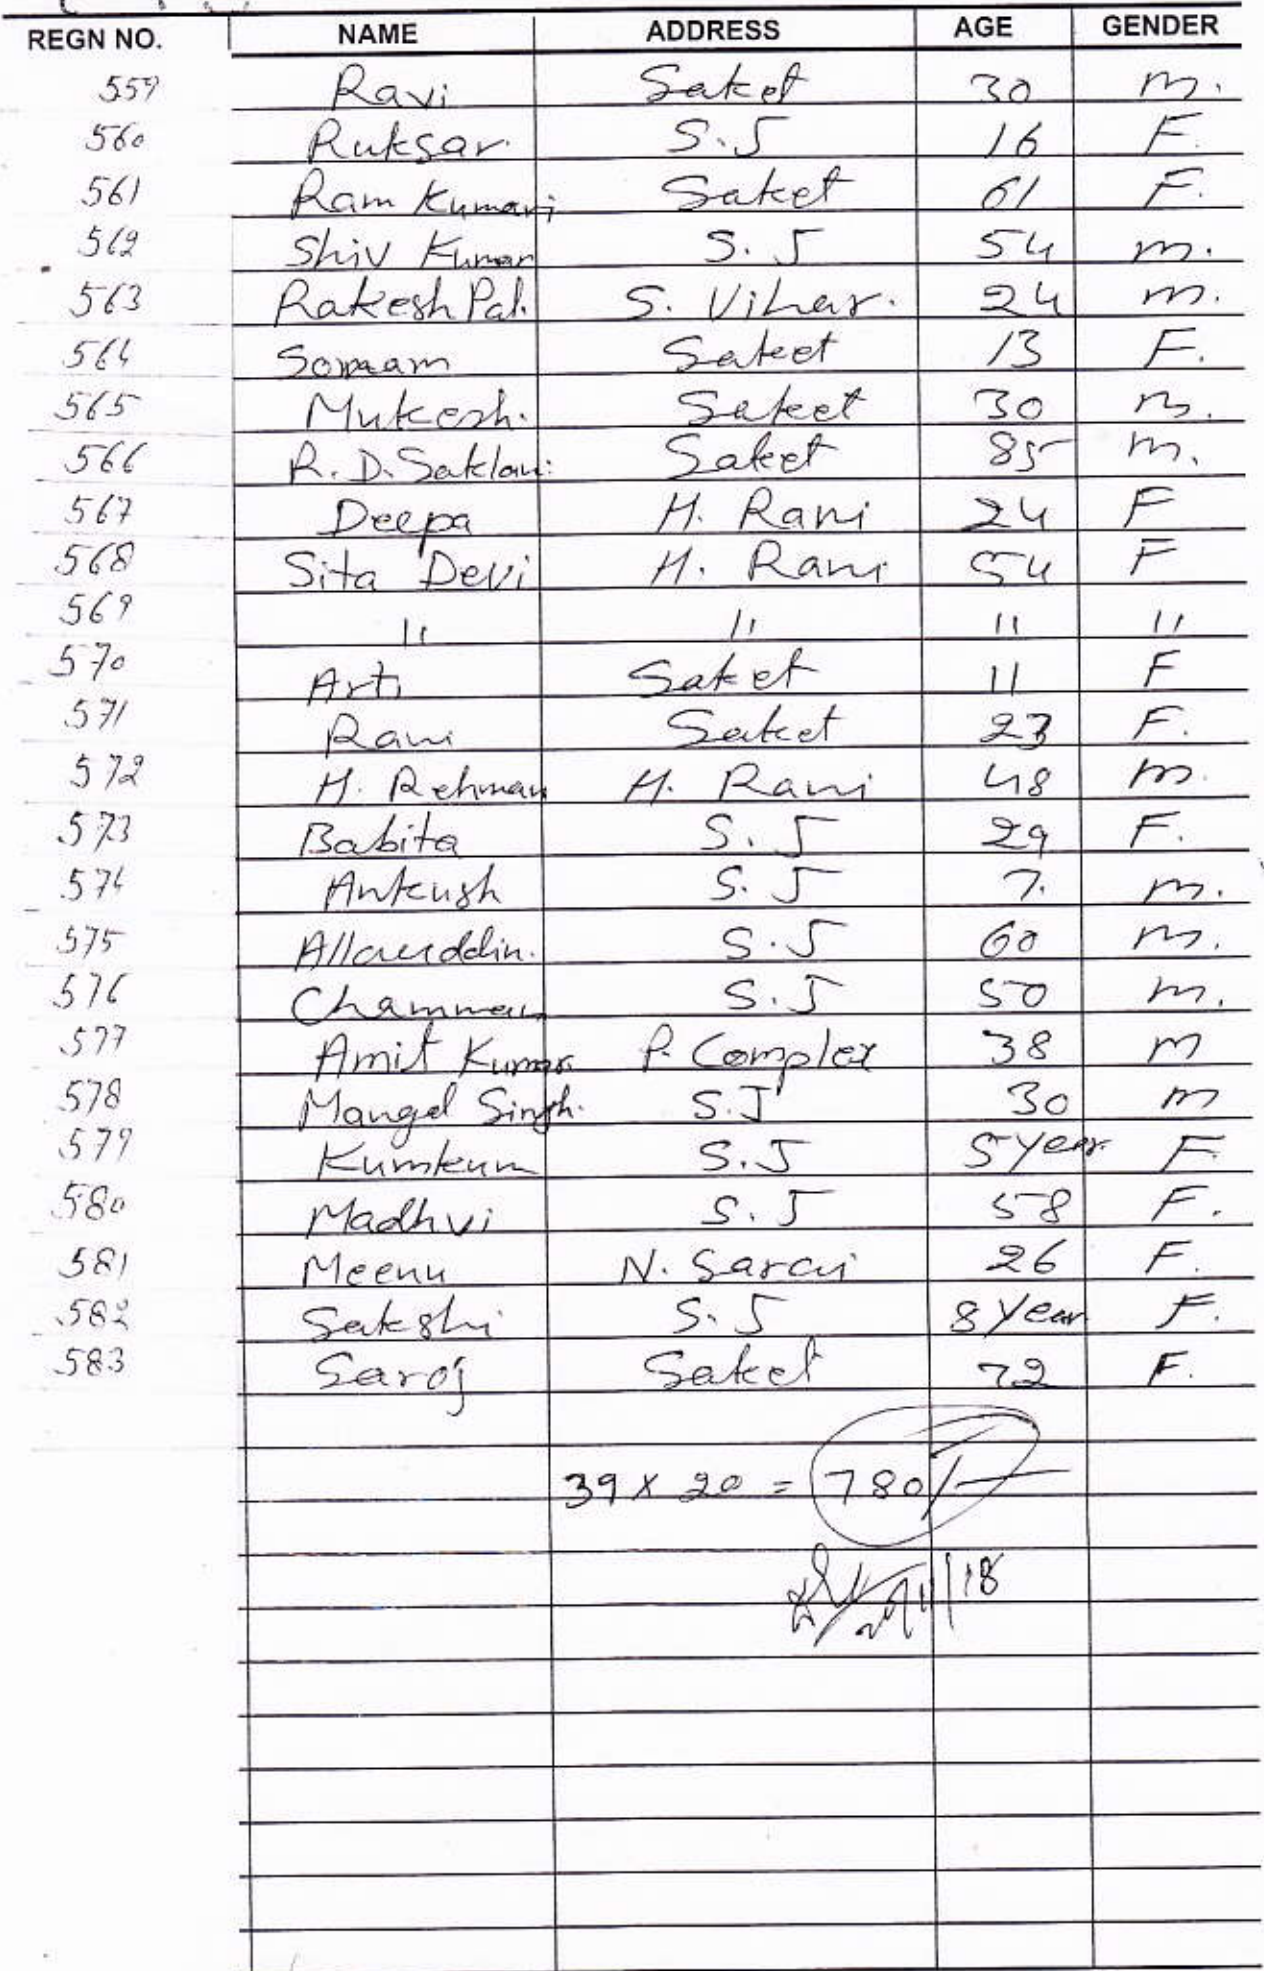 REGN NO. NAME ADDRESS AGE GENDER
559 Ravi Saket 30 m.
560 Ruksar. S.J 16 F.
561 Ram Kumari Saket 61 F.
562 Shiv Kumar S. J 54 m.
563 Rakesh Pal. S. Vihar. 24 m.
564 Saket 13 F.
565 Mukesh. Saket 30 m.
566 R. D. Saklani Saket 85 m.
567 Deepa H. Rani 24 F
568 Sita Devi H. Rani 54 F
569 11 11 11 11
570 Arti Saket 11 F
571 Rani Saket 23 F.
572 H. Rehman H. Rani 48 m
573 Babita S. J 29 F.
574 Ankush S. J 7. m.
575 Allauddin. S.J 60 m.
576 Chamman S.J 50 m.
577 Amit Kumar. P. Complex 38 m
578 Mangal Singh. S.J 30 m
579 Kumkum S.J 5 Year. F.
580 Madhvi S.J 58 F.
581 Meenu N. Sarai 26 F.
582 Sakshi S. J 8 Year F.
583 Saroj Saket 72 F.
39 x 20 = 780/-